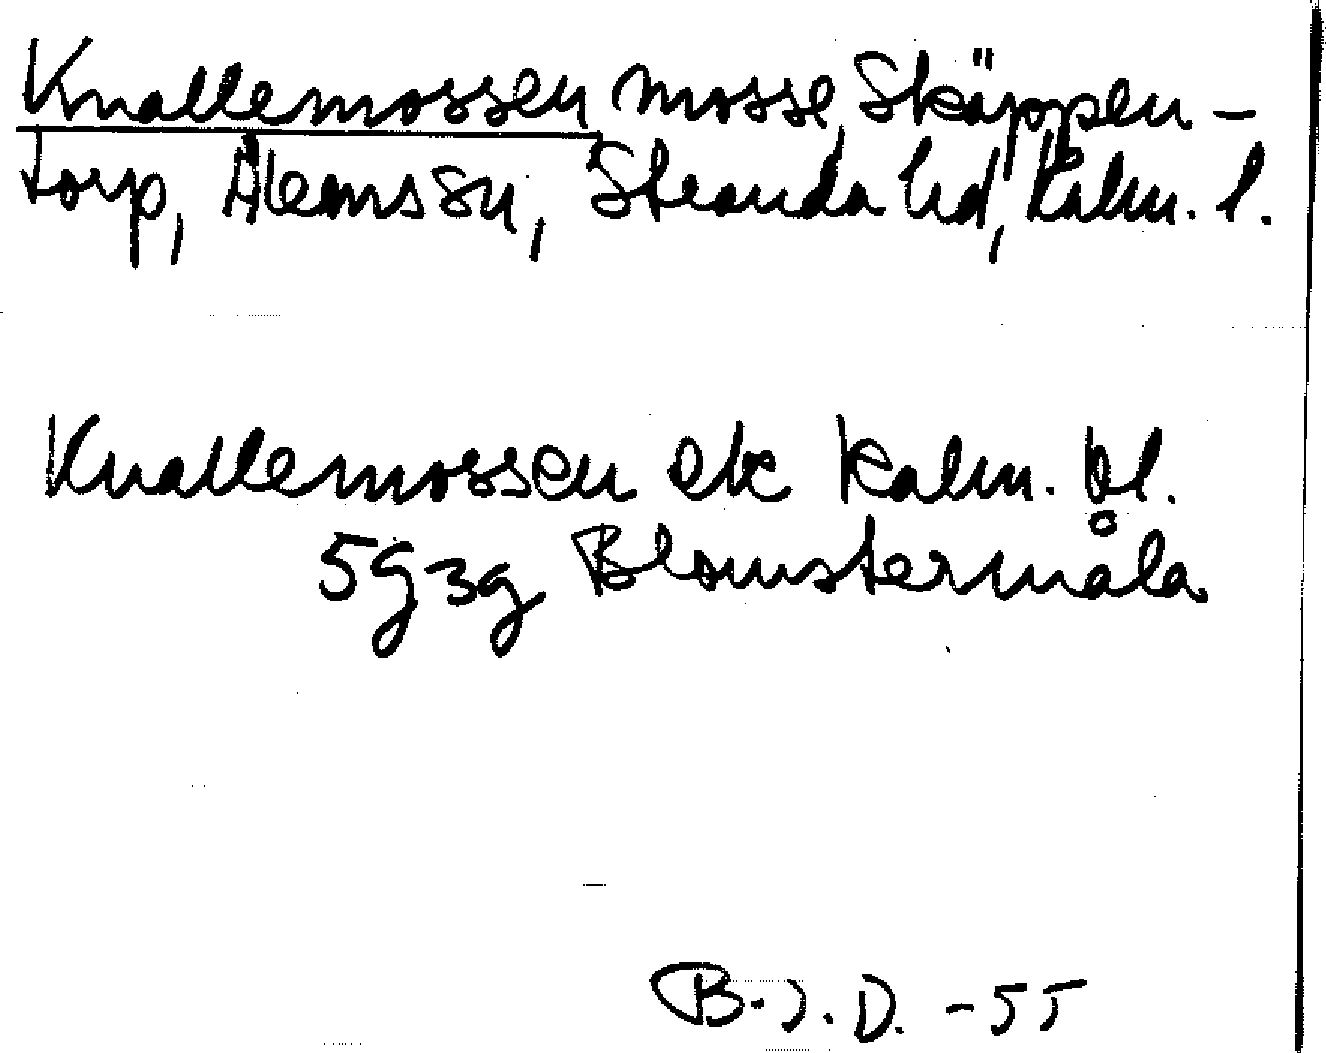 Knallemossen mosse, Skäppen-
torp, Ålems sn, Stranda hd, Kalm. l.
Knallemossen ek Kalm. bl.
5g3g Blomstermåla
B.J.D. -55